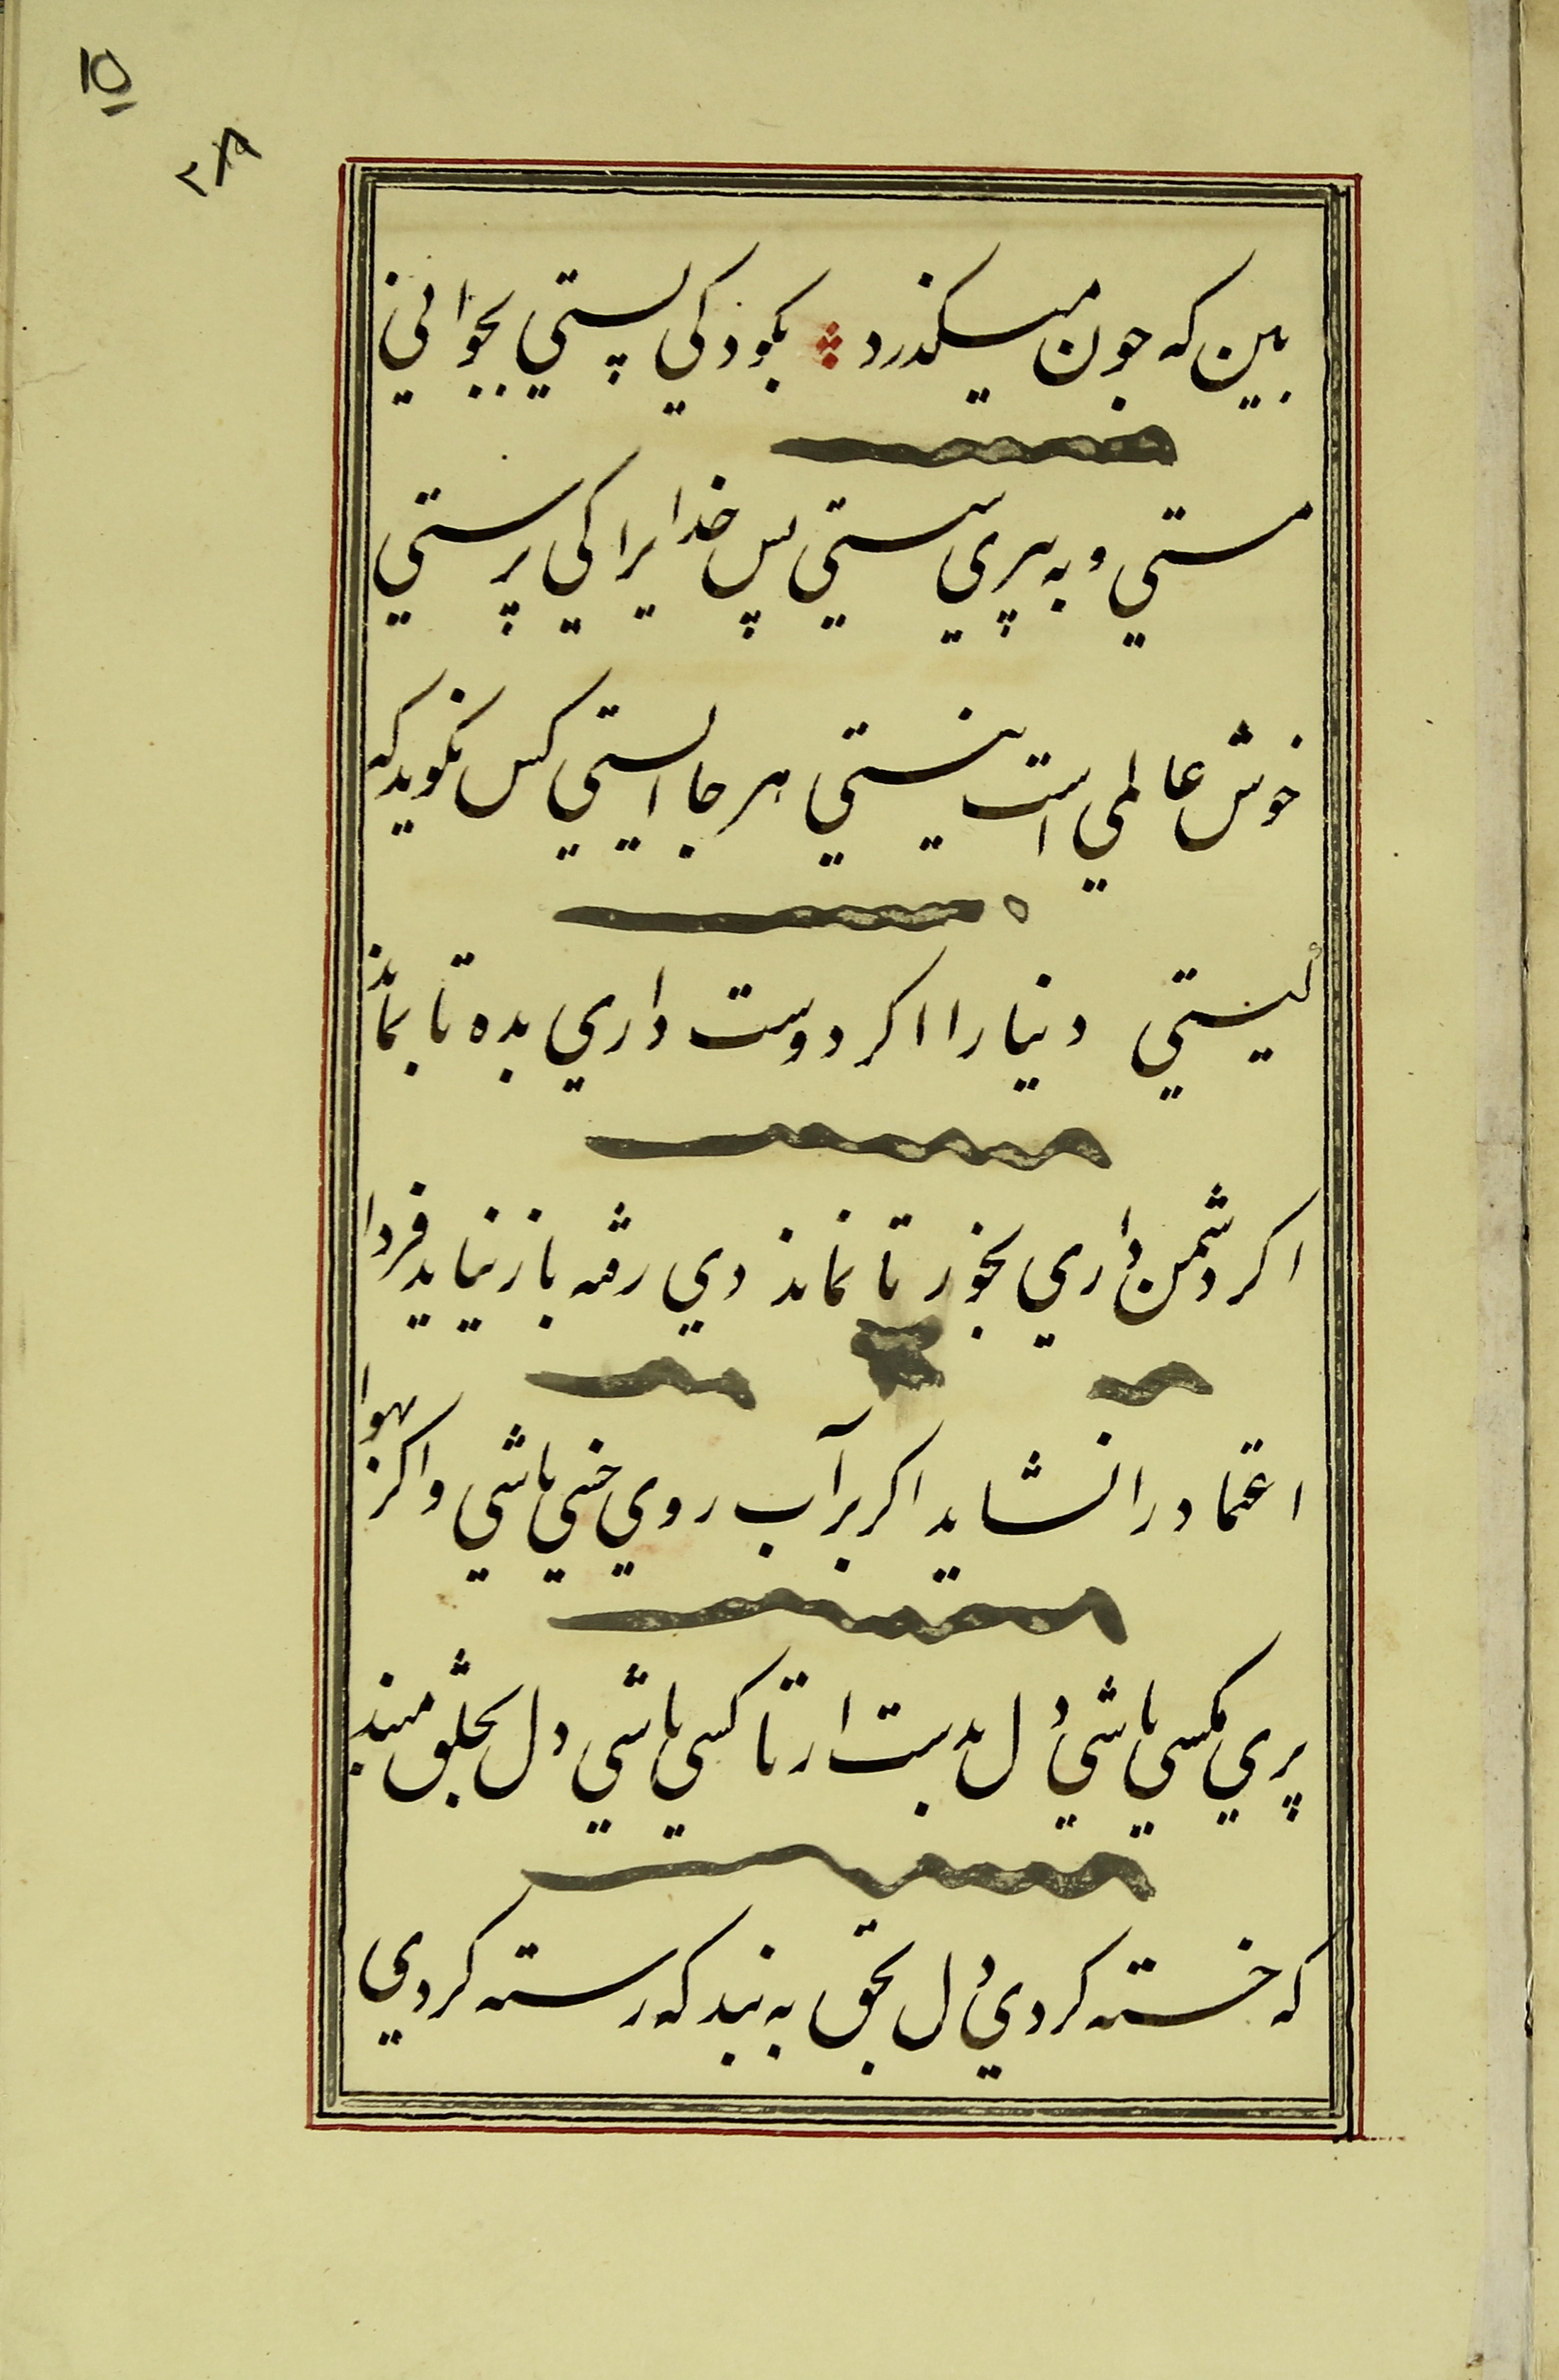 ۱۵
ببین که جون میکذرد بکودکي پستي بجواني
مستي و به پیري سستي پس خدایرا کي پرستي
خوش عالمي است نیستي هر جا ایستي کس نکوید که
کیستي دنیا را اکر دوست داري بده تا بماند
اکر دشمن داري بخور تا نماند دي رفته باز نیاید فردا
اعتماد را نشاید اکر بر آب روي خسي باشي و اکر بهوا
پري مکسي باشي دل بدست ار تا کسي باشي دل بخلق مبند
که خسته کردي دل بحق به بند که رسته کردي